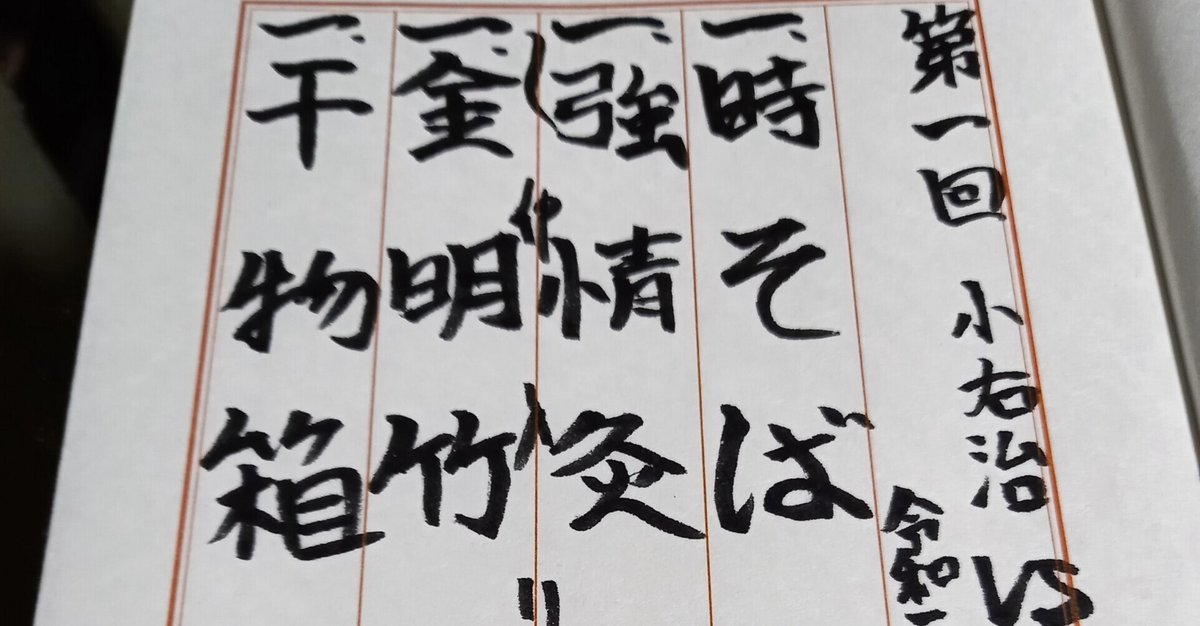 第一回 小右治 VS
令和一
一、時そば
一、強情灸
し仲入り
一、金明竹
一、干物箱